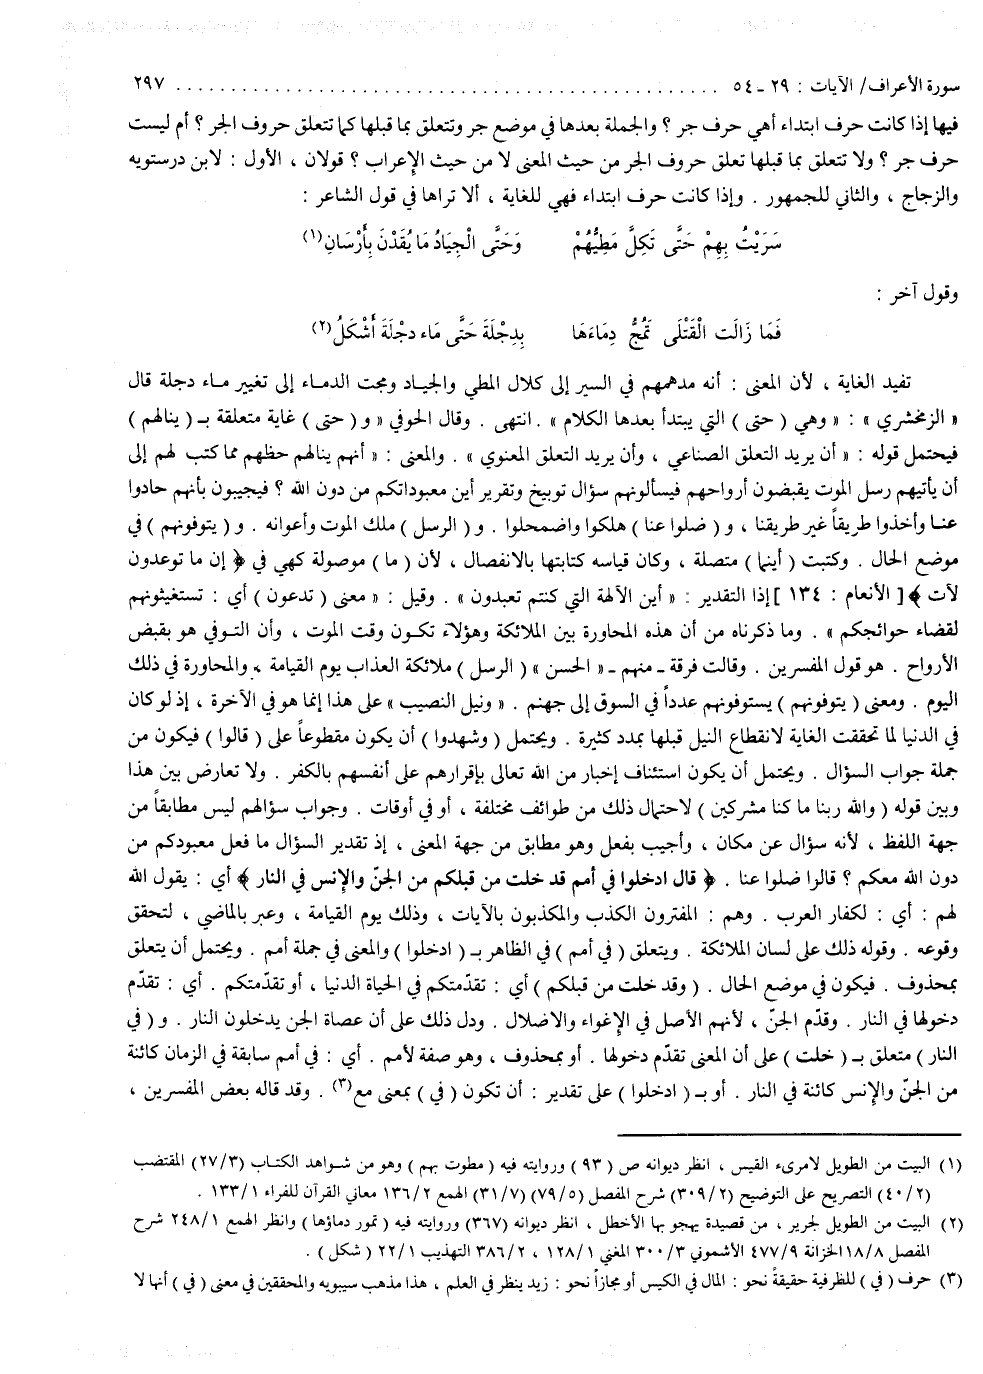 سورة الأعراف/ الآيات : ٢٩ ـ ٥٤ ................................................ ٢٩٧
فيها إذا كانت حرف ابتداء أهي حرف جر ؟ والجملة بعدها في موضع جر وتتعلق بما قبلها كما تتعلق حروف الجر ؟ أم ليست
حرف جر ؟ ولا تتعلق بما قبلها تعلق حروف الجر من حيث المعنى لا من حيث الإعراب ؟ قولان ، الأول : لابن درستويه
والزجاج ، والثاني للجمهور . وإذا كانت حرف ابتداء فهي للغاية ، ألا تراها في قول الشاعر :
سَرَيْتُ بِهِمْ حَتَّى تَكِلَّ مَطِيُّهُمْ وَحَتَّى الْجِيَادُ مَا يُقَدْنَ بِأَرْسَانِ(١)
وقول آخر :
فَمَا زَالَت الْقَتْلَى تَمُجُّ دِمَاءَهَا بِدِجْلَةَ حَتَّى مَاء دجْلَةَ أَشْكَلُ(٢)
تفيد الغاية ، لأن المعنى : أنه مدهمهم في السير إلى كلال المطي والجياد ومجت الدماء إلى تغيير ماء دجلة قال
« الزمخشري » : « وهي ( حتى ) التي يبتدأ بعدها الكلام » . انتهى . وقال الحوفي « و ( حتى ) غاية متعلقة بـ ( ينالهم )
فيحتمل قوله : « أن يريد التعلق الصناعي ، وأن يريد التعلق المعنوي » . والمعنى : « أنهم ينالهم حظهم مما كتب لهم إلى
أن يأتيهم رسل الموت يقبضون أرواحهم فيسألونهم سؤال توبيخ وتقرير أين معبوداتكم من دون الله ؟ فيجيبون بأنهم حادوا
عنا وأخذوا طريقاً غير طريقنا ، و ( ضلوا عنا ) هلكوا واضمحلوا . و ( الرسل ) ملك الموت وأعوانه . و ( يتوفونهم ) في
موضع الحال . وكتبت ( أينما ) متصلة ، وكان قياسه كتابتها بالانفصال ، لأن ( ما ) موصولة كهي في ﴿ إن ما توعدون
لآت ﴾ [ الأنعام : ١٣٤ ] إذا التقدير : « أين الآلهة التي كنتم تعبدون » . وقيل : « معنى ( تدعون ) أي : تستغيثونهم
لقضاء حوائجكم » . وما ذكرناه من أن هذه المحاورة بين الملائكة وهؤلاء تكون وقت الموت ، وأن التوفي هو بقبض
الأرواح . هو قول المفسرين . وقالت فرقة ـ منهم ـ « الحسن » ( الرسل ) ملائكة العذاب يوم القيامة ، والمحاورة في ذلك
اليوم . ومعنى ( يتوفونهم ) يستوفونهم عدداً في السوق إلى جهنم . « ونيل النصيب » على هذا إنما هو في الآخرة ، إذ لو كان
في الدنيا لما تحققت الغاية لانقطاع النيل قبلها بمدد كثيرة . ويحتمل ( وشهدوا ) أن يكون مقطوعاً على ( قالوا ) فيكون من
جملة جواب السؤال . ويحتمل أن يكون استئناف إخبار من الله تعالى بإقرارهم على أنفسهم بالكفر . ولا تعارض بين هذا
وبين قوله ( والله ربنا ما كنا مشركين ) لاحتمال ذلك من طوائف مختلفة ، أو في أوقات . وجواب سؤالهم ليس مطابقاً من
جهة اللفظ ، لأنه سؤال عن مكان ، وأجيب بفعل وهو مطابق من جهة المعنى ، إذ تقدير السؤال ما فعل معبودكم من
دون الله معكم ؟ قالوا ضلوا عنا . ﴿ قال ادخلوا في أمم قد خلت من قبلكم من الجنّ والإنس في النار ﴾ أي : يقول الله
لهم : أي : لكفار العرب . وهم : المفترون الكذب والمكذبون بالآيات ، وذلك يوم القيامة ، وعبر بالماضي ، لتحقق
وقوعه . وقوله ذلك على لسان الملائكة . ويتعلق ( في أمم ) في الظاهر بـ ( ادخلوا ) والمعنى في جملة أمم . ويحتمل أن يتعلق
بمحذوف . فيكون في موضع الحال . ( وقد خلت من قبلكم ) أي : تقدّمتكم في الحياة الدنيا ، أو تقدّمتكم . أي : تقدّم
دخولها في النار . وقدّم الجنّ ، لأنهم الأصل في الإغواء والاضلال . ودل ذلك على أن عصاة الجن يدخلون النار . و ( في
النار ) متعلق بـ ( خلت ) على أن المعنى تقدّم دخولها . أو بمحذوف ، وهو صفة لأمم . أي : في أمم سابقة في الزمان كائنة
من الجنّ والإنس كائنة في النار . أو بـ ( ادخلوا ) على تقدير : أن تكون ( في ) بمعنى مع(٣) . وقد قاله بعض المفسرين ،
(١) البيت من الطويل لامرىء القيس ، انظر ديوانه ص ( ٩٣ ) وروايته فيه ( مطوت بهم ) وهو من شواهد الكتاب (٢٧/٣) المقتضب
(٤٠/٢) التصريح على التوضيح (٣٠٩/٢) شرح المفصل (٧٩/٥) (٣١/٧) الهمع ١٣٦/٢ معاني القرآن للفراء ١٣٣/١ .
(٢) البيت من الطويل لجرير ، من قصيدة يهجو بها الأخطل ، انظر ديوانه (٣٦٧) وروايته فيه ( تمور دماؤها ) وانظر الهمع ٢٤٨/١ شرح
المفصل ١٨/٨ الخزانة ٤٧٧/٩ الأشموني ٣٠٠/٣ المغني ١٢٨/١ ، ٣٨٦/٢ التهذيب ٢٢/١ ( شكل ) .
(٣) حرف ( في ) للظرفية حقيقةً نحو : المال في الكيس أو مجازاً نحو : زيد ينظر في العلم ، هذا مذهب سيبويه والمحققين في معنى ( في ) أنها لا